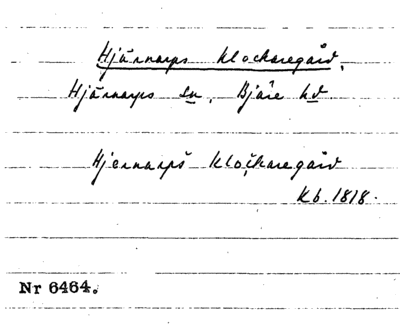 Hjärnarps klockaregård,
Hjärnarps sn, Bjäre hd.
Hjernarps klockaregård
Kb. 1818.
Nr 6464.